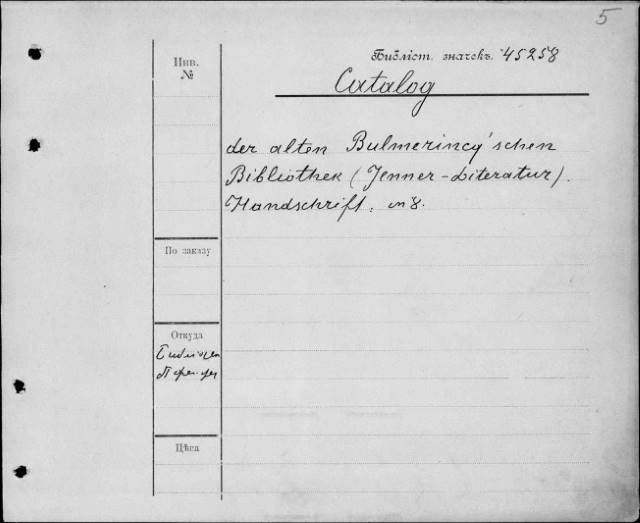 5
Инв.
№
Библіот. значекъ 45258
Catalog
der alten Bulmerincq'schen
Bibliothek (Jenner-Literatur).
Handschrift. in 8.
По заказу
Откуда
Цѣна